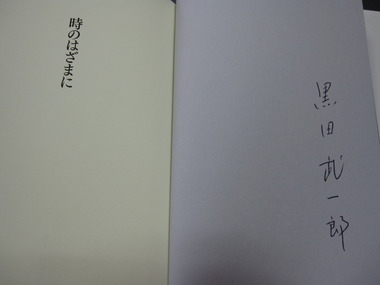 時のはざまに
黒田武一郎